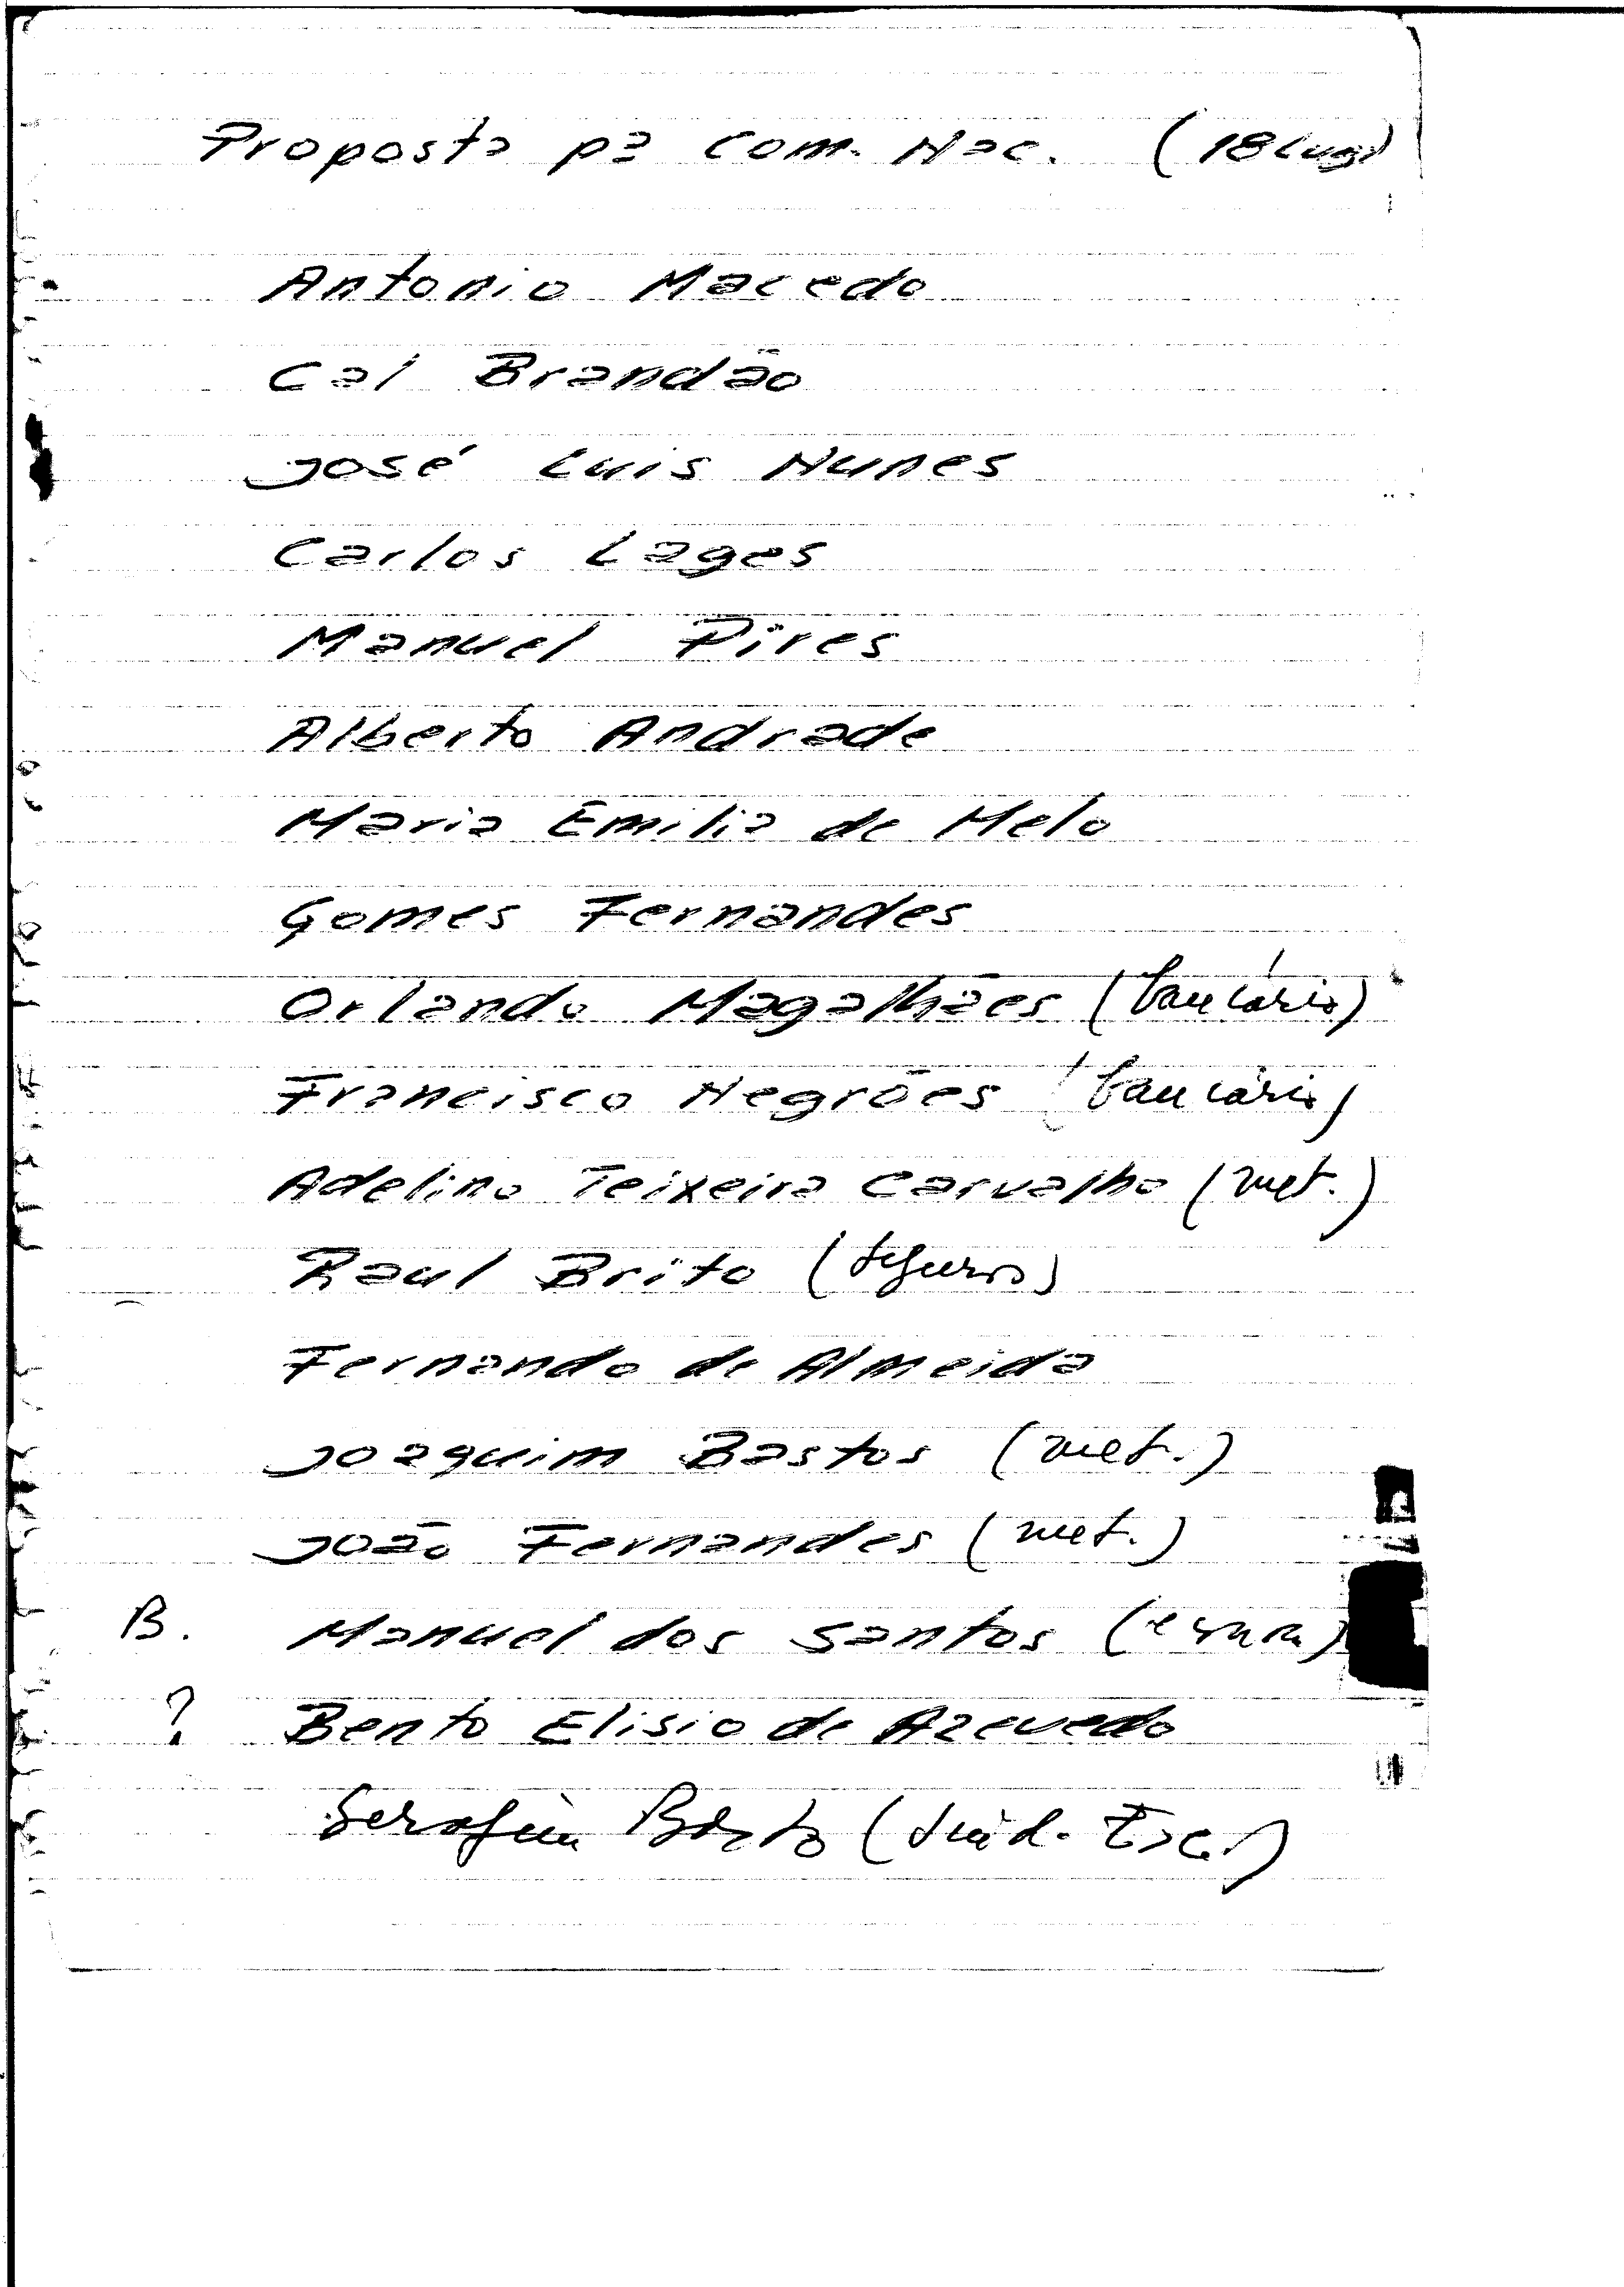 Proposta pª Com. Nac. (18 Lug.)
Antonio Macedo
Cal Brandão
José Luis Nunes
Carlos Lages
Manuel Pires
Alberto Andrade
Maria Emilia de Melo
Gomes Fernandes
Orlando Magalhães (bancário)
Francisco Negrões (bancário)
Adelino Teixeira Carvalho (met.)
Raul Brito (seguros)
Fernando de Almeida
Joaquim Bastos (met.)
João Fernandes (met.)
B. Manuel dos Santos
? Bento Elisio de Azevedo
Serafim (Sind. Esc.)